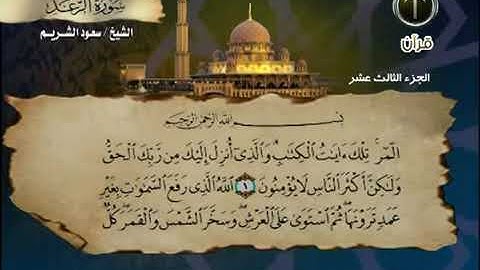 سُورَةُ الرَّعْدِ
الشيخ / سعود الشريم
قرآن
الجزء الثالث عشر
بِسْمِ اللَّهِ الرَّحْمَٰنِ الرَّحِيمِ
الٓمٓرۚ تِلۡكَ ءَايَٰتُ ٱلۡكِتَٰبِۗ وَٱلَّذِيٓ أُنزِلَ إِلَيۡكَ مِن رَّبِّكَ ٱلۡحَقُّ
وَلَٰكِنَّ أَكۡثَرَ ٱلنَّاسِ لَا يُؤۡمِنُونَ ١ ٱللَّهُ ٱلَّذِي رَفَعَ ٱلسَّمَٰوَٰتِ بِغَيۡرِ
عَمَدٖ تَرَوۡنَهَاۖ ثُمَّ ٱسۡتَوَىٰ عَلَى ٱلۡعَرۡشِۖ وَسَخَّرَ ٱلشَّمۡسَ وَٱلۡقَمَرَۖ كُلّٞ